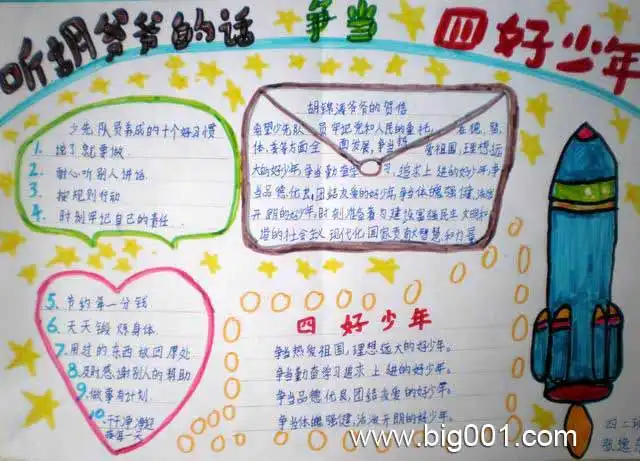 听胡爷爷的话 争当 四好少年
少先队员养成的十个好习惯
1. 说了就要做
2. 耐心听别人讲话
3. 按规则行动
4. 时刻牢记自己的责任
胡锦涛爷爷的贺信
希望少先队 员牢记党和人民的重托, 在德、智、
体、美等方面全 面发展,争当热 爱祖国,理想远
大的好少年,争当勤奋学习、追求上进的好少年,争
当品德优良,团结友爱的好少年,争当体魄强健,活泼
开朗的好少年,时刻准备着为建设富强民主文明和
谐的社会主义现代化国家贡献智慧和力量
5. 节约每一分钱
6. 天天锻炼身体
7. 用过的东西放回原处
8. 及时感谢别人的帮助
9. 做事有计划
10. 干干净净
每一天
四好少年
争当热爱祖国,理想远大的好少年。
争当勤奋学习追求上进的好少年。
争当品德优良,团结友爱的好少年。
争当体魄强健,活泼开朗的好少年。
四二班
www.big001.com